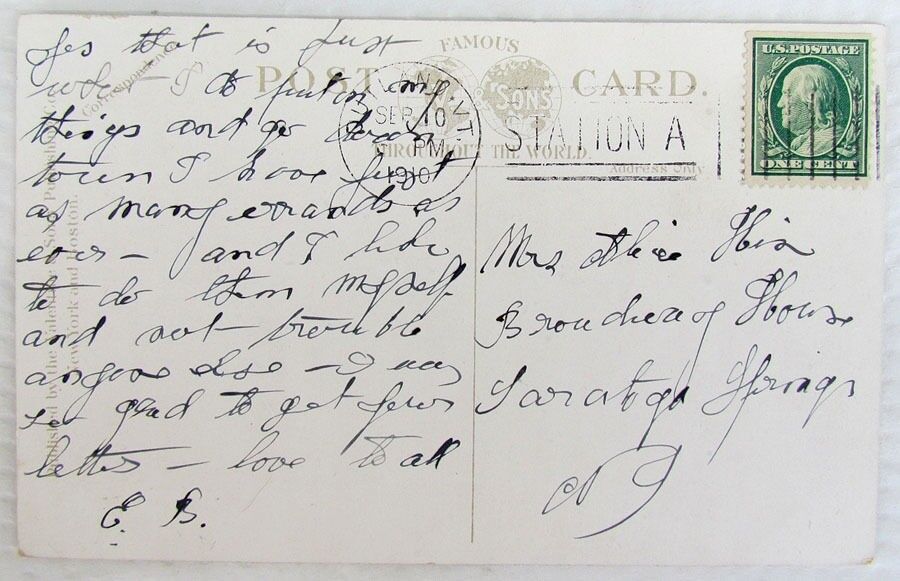 Yes that is just
what I do put on my
things and go down
town I have just
as many errands as
ever – and I like
to do them myself
and not trouble
anyone else – I was
so glad to get your
letter – love to all
E. B.
Correspondence
Published by the Valentine & Sons Publishing
New York and Boston.
FAMOUS
POST CARD.
SONS
THROUGHOUT THE WORLD.
Address Only
SEP 10
PM
1910
VT
STATION A
U.S. POSTAGE
ONE CENT
Mrs Alice
House
Saratoga Springs
NY